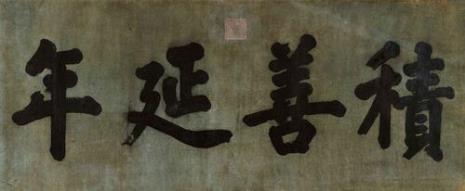 積善延年